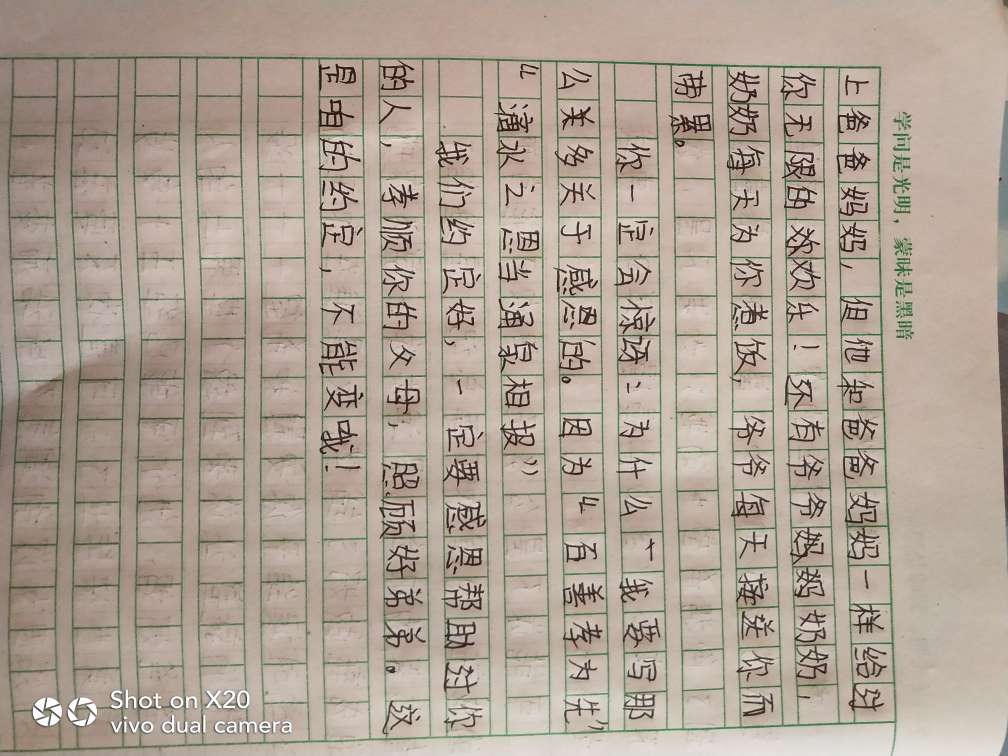 学问是光明，蒙昧是黑暗
上爸爸妈妈，但他和爸爸妈妈一样给过
你无限的欢乐！还有爷爷奶奶，
奶奶每天为你煮饭，爷爷每天接送你而
劳累。
你一定会惊讶：为什么个我要写那
么关多关于感恩的。因为“百善孝为先”
“滴水之恩当涌泉相报”
我们约定好，一定要感恩帮助过你
的人，孝顺你的父母，照顾好弟弟。这
是咱的约定，不能变哦！
Shot on X20
vivo dual camera